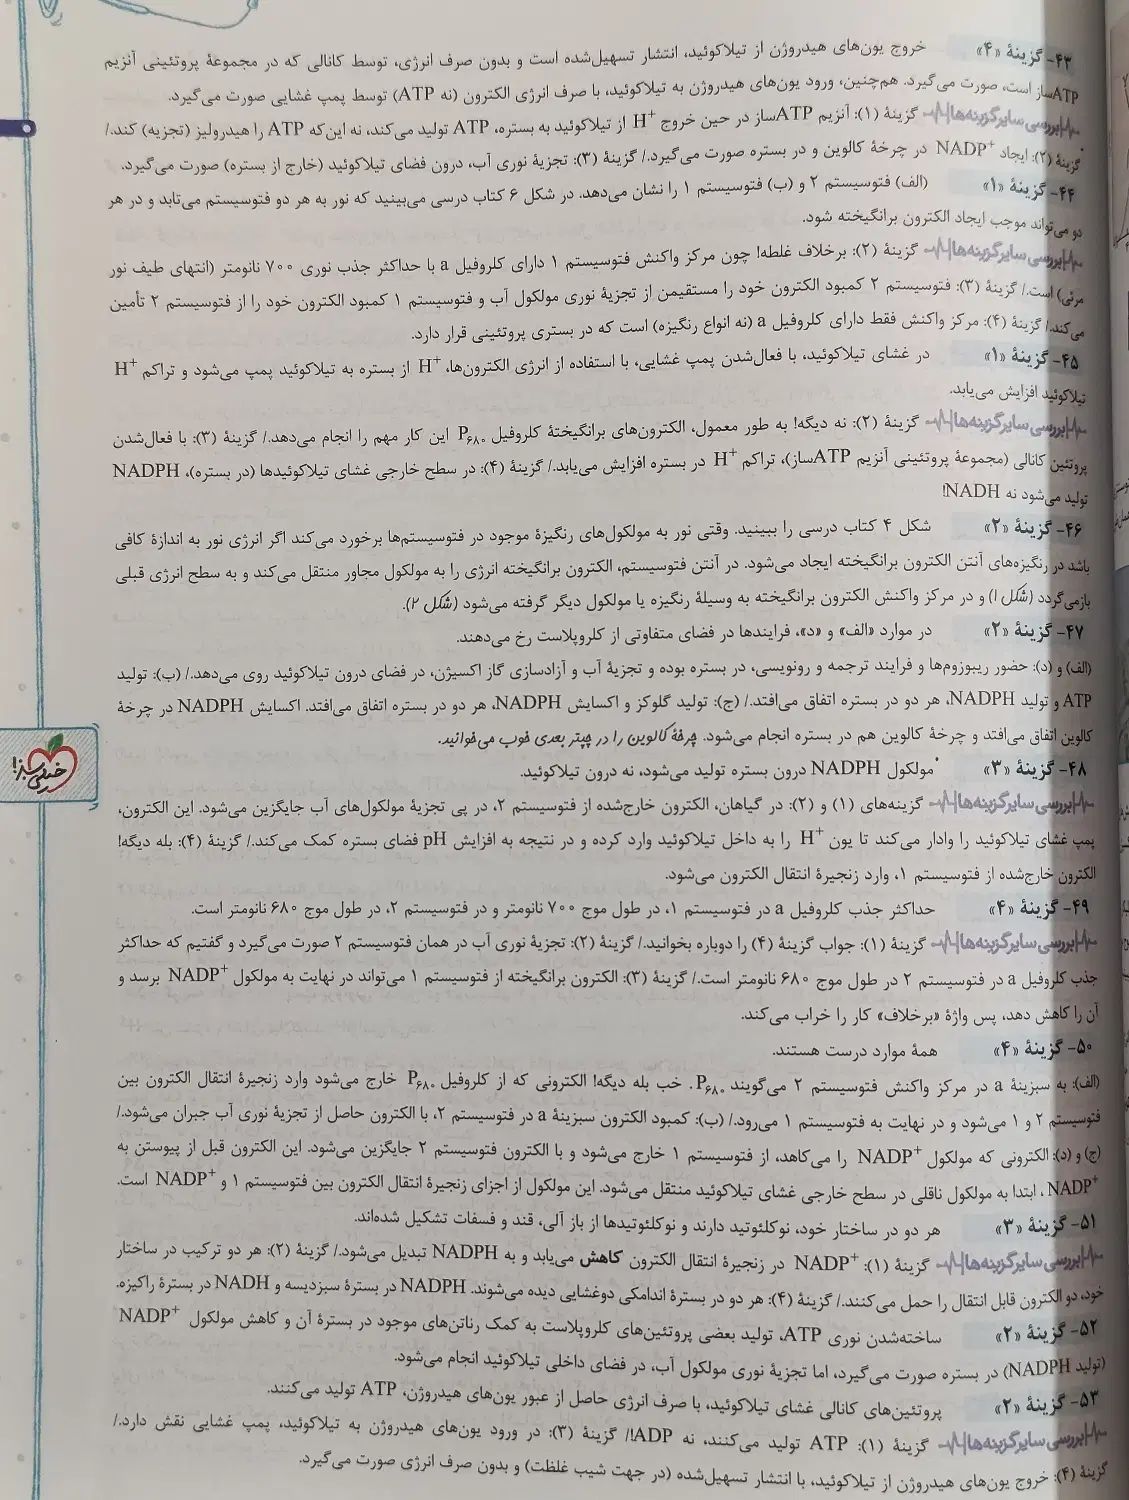 ۴۳- گزینهٔ «۴» خروج یون‌های هیدروژن از تیلاکوئید، انتشار تسهیل‌شده است و بدون صرف انرژی، توسط کانالی که در مجموعهٔ پروتئینی آنزیم
ATPساز است، صورت می‌گیرد. هم‌چنین، ورود یون‌های هیدروژن به تیلاکوئید، با صرف انرژی الکترون (نه ATP) توسط پمپ غشایی صورت می‌گیرد.
بررسی سایر گزینه‌ها گزینهٔ (۱): آنزیم ATPساز در حین خروج H⁺ از تیلاکوئید به بستره، ATP تولید می‌کند، نه این‌که ATP را هیدرولیز (تجزیه) کند./
گزینهٔ (۲): ایجاد NADP⁺ در چرخهٔ کالوین و در بستره صورت می‌گیرد./ گزینهٔ (۳): تجزیهٔ نوری آب، درون فضای تیلاکوئید (خارج از بستره) صورت می‌گیرد.
۴۴- گزینهٔ «۱» (الف) فتوسیستم ۲ و (ب) فتوسیستم ۱ را نشان می‌دهد. در شکل ۶ کتاب درسی می‌بینید که نور به هر دو فتوسیستم می‌تابد و در هر
دو می‌تواند موجب ایجاد الکترون برانگیخته شود.
بررسی سایر گزینه‌ها گزینهٔ (۲): برخلاف غلطه! چون مرکز واکنش فتوسیستم ۱ دارای کلروفیل a با حداکثر جذب نوری ۷۰۰ نانومتر (انتهای طیف نور
مرئی) است./ گزینهٔ (۳): فتوسیستم ۲ کمبود الکترون خود را مستقیمن از تجزیهٔ نوری مولکول آب و فتوسیستم ۱ کمبود الکترون خود را از فتوسیستم ۲ تأمین
می‌کند./ گزینهٔ (۴): مرکز واکنش فقط دارای کلروفیل a (نه انواع رنگیزه) است که در بستری پروتئینی قرار دارد.
۴۵- گزینهٔ «۱» در غشای تیلاکوئید، با فعال‌شدن پمپ غشایی، با استفاده از انرژی الکترون‌ها، H⁺ از بستره به تیلاکوئید پمپ می‌شود و تراکم H⁺
تیلاکوئید افزایش می‌یابد.
بررسی سایر گزینه‌ها گزینهٔ (۲): نه دیگه! به طور معمول، الکترون‌های برانگیختهٔ کلروفیل P₆₈₀ این کار مهم را انجام می‌دهد./ گزینهٔ (۳): با فعال‌شدن
پروتئین کانالی (مجموعهٔ پروتئینی آنزیم ATPساز)، تراکم H⁺ در بستره افزایش می‌یابد./ گزینهٔ (۴): در سطح خارجی غشای تیلاکوئیدها (در بستره)، NADPH
تولید می‌شود نه NADH!
۴۶- گزینهٔ «۲» شکل ۴ کتاب درسی را ببینید. وقتی نور به مولکول‌های رنگیزهٔ موجود در فتوسیستم‌ها برخورد می‌کند اگر انرژی نور به اندازهٔ کافی
باشد در رنگیزه‌های آنتن الکترون برانگیخته ایجاد می‌شود. در آنتن فتوسیستم، الکترون برانگیخته انرژی را به مولکول مجاور منتقل می‌کند و به سطح انرژی قبلی
بازمی‌گردد (شکل ۱) و در مرکز واکنش الکترون برانگیخته به وسیلهٔ رنگیزه یا مولکول دیگر گرفته می‌شود (شکل ۲).
۴۷- گزینهٔ «۲» در موارد «الف» و «د»، فرایندها در فضای متفاوتی از کلروپلاست رخ می‌دهند.
(الف) و (د): حضور ریبوزوم‌ها و فرایند ترجمه و رونویسی، در بستره بوده و تجزیهٔ آب و آزادسازی گاز اکسیژن، در فضای درون تیلاکوئید روی می‌دهد./ (ب): تولید
ATP و تولید NADPH، هر دو در بستره اتفاق می‌افتد./ (ج): تولید گلوکز و اکسایش NADPH، هر دو در بستره اتفاق می‌افتد. اکسایش NADPH در چرخهٔ
کالوین اتفاق می‌افتد و چرخهٔ کالوین هم در بستره انجام می‌شود. چرخهٔ کالوین را در چپتر بعدی خوب می‌خوانید.
۴۸- گزینهٔ «۳» مولکول NADPH درون بستره تولید می‌شود، نه درون تیلاکوئید.
بررسی سایر گزینه‌ها گزینه‌های (۱) و (۲): در گیاهان، الکترون خارج‌شده از فتوسیستم ۲، در پی تجزیهٔ مولکول‌های آب جایگزین می‌شود. این الکترون،
پمپ غشای تیلاکوئید را وادار می‌کند تا یون H⁺ را به داخل تیلاکوئید وارد کرده و در نتیجه به افزایش pH فضای بستره کمک می‌کند./ گزینهٔ (۴): بله دیگه!
الکترون خارج‌شده از فتوسیستم ۱، وارد زنجیرهٔ انتقال الکترون می‌شود.
۴۹- گزینهٔ «۴» حداکثر جذب کلروفیل a در فتوسیستم ۱، در طول موج ۷۰۰ نانومتر و در فتوسیستم ۲، در طول موج ۶۸۰ نانومتر است.
بررسی سایر گزینه‌ها گزینهٔ (۱): جواب گزینهٔ (۴) را دوباره بخوانید./ گزینهٔ (۲): تجزیهٔ نوری آب در همان فتوسیستم ۲ صورت می‌گیرد و گفتیم که حداکثر
جذب کلروفیل a در فتوسیستم ۲ در طول موج ۶۸۰ نانومتر است./ گزینهٔ (۳): الکترون برانگیخته از فتوسیستم ۱ می‌تواند در نهایت به مولکول NADP⁺ برسد و
آن را کاهش دهد، پس واژهٔ «برخلاف» کار را خراب می‌کند.
۵۰- گزینهٔ «۴» همهٔ موارد درست هستند.
(الف): به سبزینهٔ a در مرکز واکنش فتوسیستم ۲ می‌گویند P₆₈₀. خب بله دیگه! الکترونی که از کلروفیل P₆₈₀ خارج می‌شود وارد زنجیرهٔ انتقال الکترون بین
فتوسیستم ۲ و ۱ می‌شود و در نهایت به فتوسیستم ۱ می‌رود./ (ب): کمبود الکترون سبزینهٔ a در فتوسیستم ۲، با الکترون حاصل از تجزیهٔ نوری آب جبران می‌شود./
(ج) و (د): الکترونی که مولکول NADP⁺ را می‌کاهد، از فتوسیستم ۱ خارج می‌شود و با الکترون فتوسیستم ۲ جایگزین می‌شود. این الکترون قبل از پیوستن به
NADP⁺، ابتدا به مولکول ناقلی در سطح خارجی غشای تیلاکوئید منتقل می‌شود. این مولکول از اجزای زنجیرهٔ انتقال الکترون بین فتوسیستم ۱ و NADP⁺ است.
۵۱- گزینهٔ «۳» هر دو در ساختار خود، نوکلئوتید دارند و نوکلئوتیدها از باز آلی، قند و فسفات تشکیل شده‌اند.
بررسی سایر گزینه‌ها گزینهٔ (۱): NADP⁺ در زنجیرهٔ انتقال الکترون کاهش می‌یابد و به NADPH تبدیل می‌شود./ گزینهٔ (۲): هر دو ترکیب در ساختار
خود، دو الکترون قابل انتقال را حمل می‌کنند./ گزینهٔ (۴): هر دو در بسترهٔ اندامکی دوغشایی دیده می‌شوند. NADPH در بسترهٔ سبزدیسه و NADH در بسترهٔ راکیزه.
۵۲- گزینهٔ «۲» ساخته‌شدن نوری ATP، تولید بعضی پروتئین‌های کلروپلاست به کمک رناتن‌های موجود در بسترهٔ آن و کاهش مولکول NADP⁺
(تولید NADPH) در بستره صورت می‌گیرد، اما تجزیهٔ نوری مولکول آب، در فضای داخلی تیلاکوئید انجام می‌شود.
۵۳- گزینهٔ «۲» پروتئین‌های کانالی غشای تیلاکوئید، با صرف انرژی حاصل از عبور یون‌های هیدروژن، ATP تولید می‌کنند.
بررسی سایر گزینه‌ها گزینهٔ (۱): ATP تولید می‌کنند، نه ADP!/ گزینهٔ (۳): در ورود یون‌های هیدروژن به تیلاکوئید، پمپ غشایی نقش دارد./
گزینهٔ (۴): خروج یون‌های هیدروژن از تیلاکوئید، با انتشار تسهیل‌شده (در جهت شیب غلظت) و بدون صرف انرژی صورت می‌گیرد.
خیلی سبز!